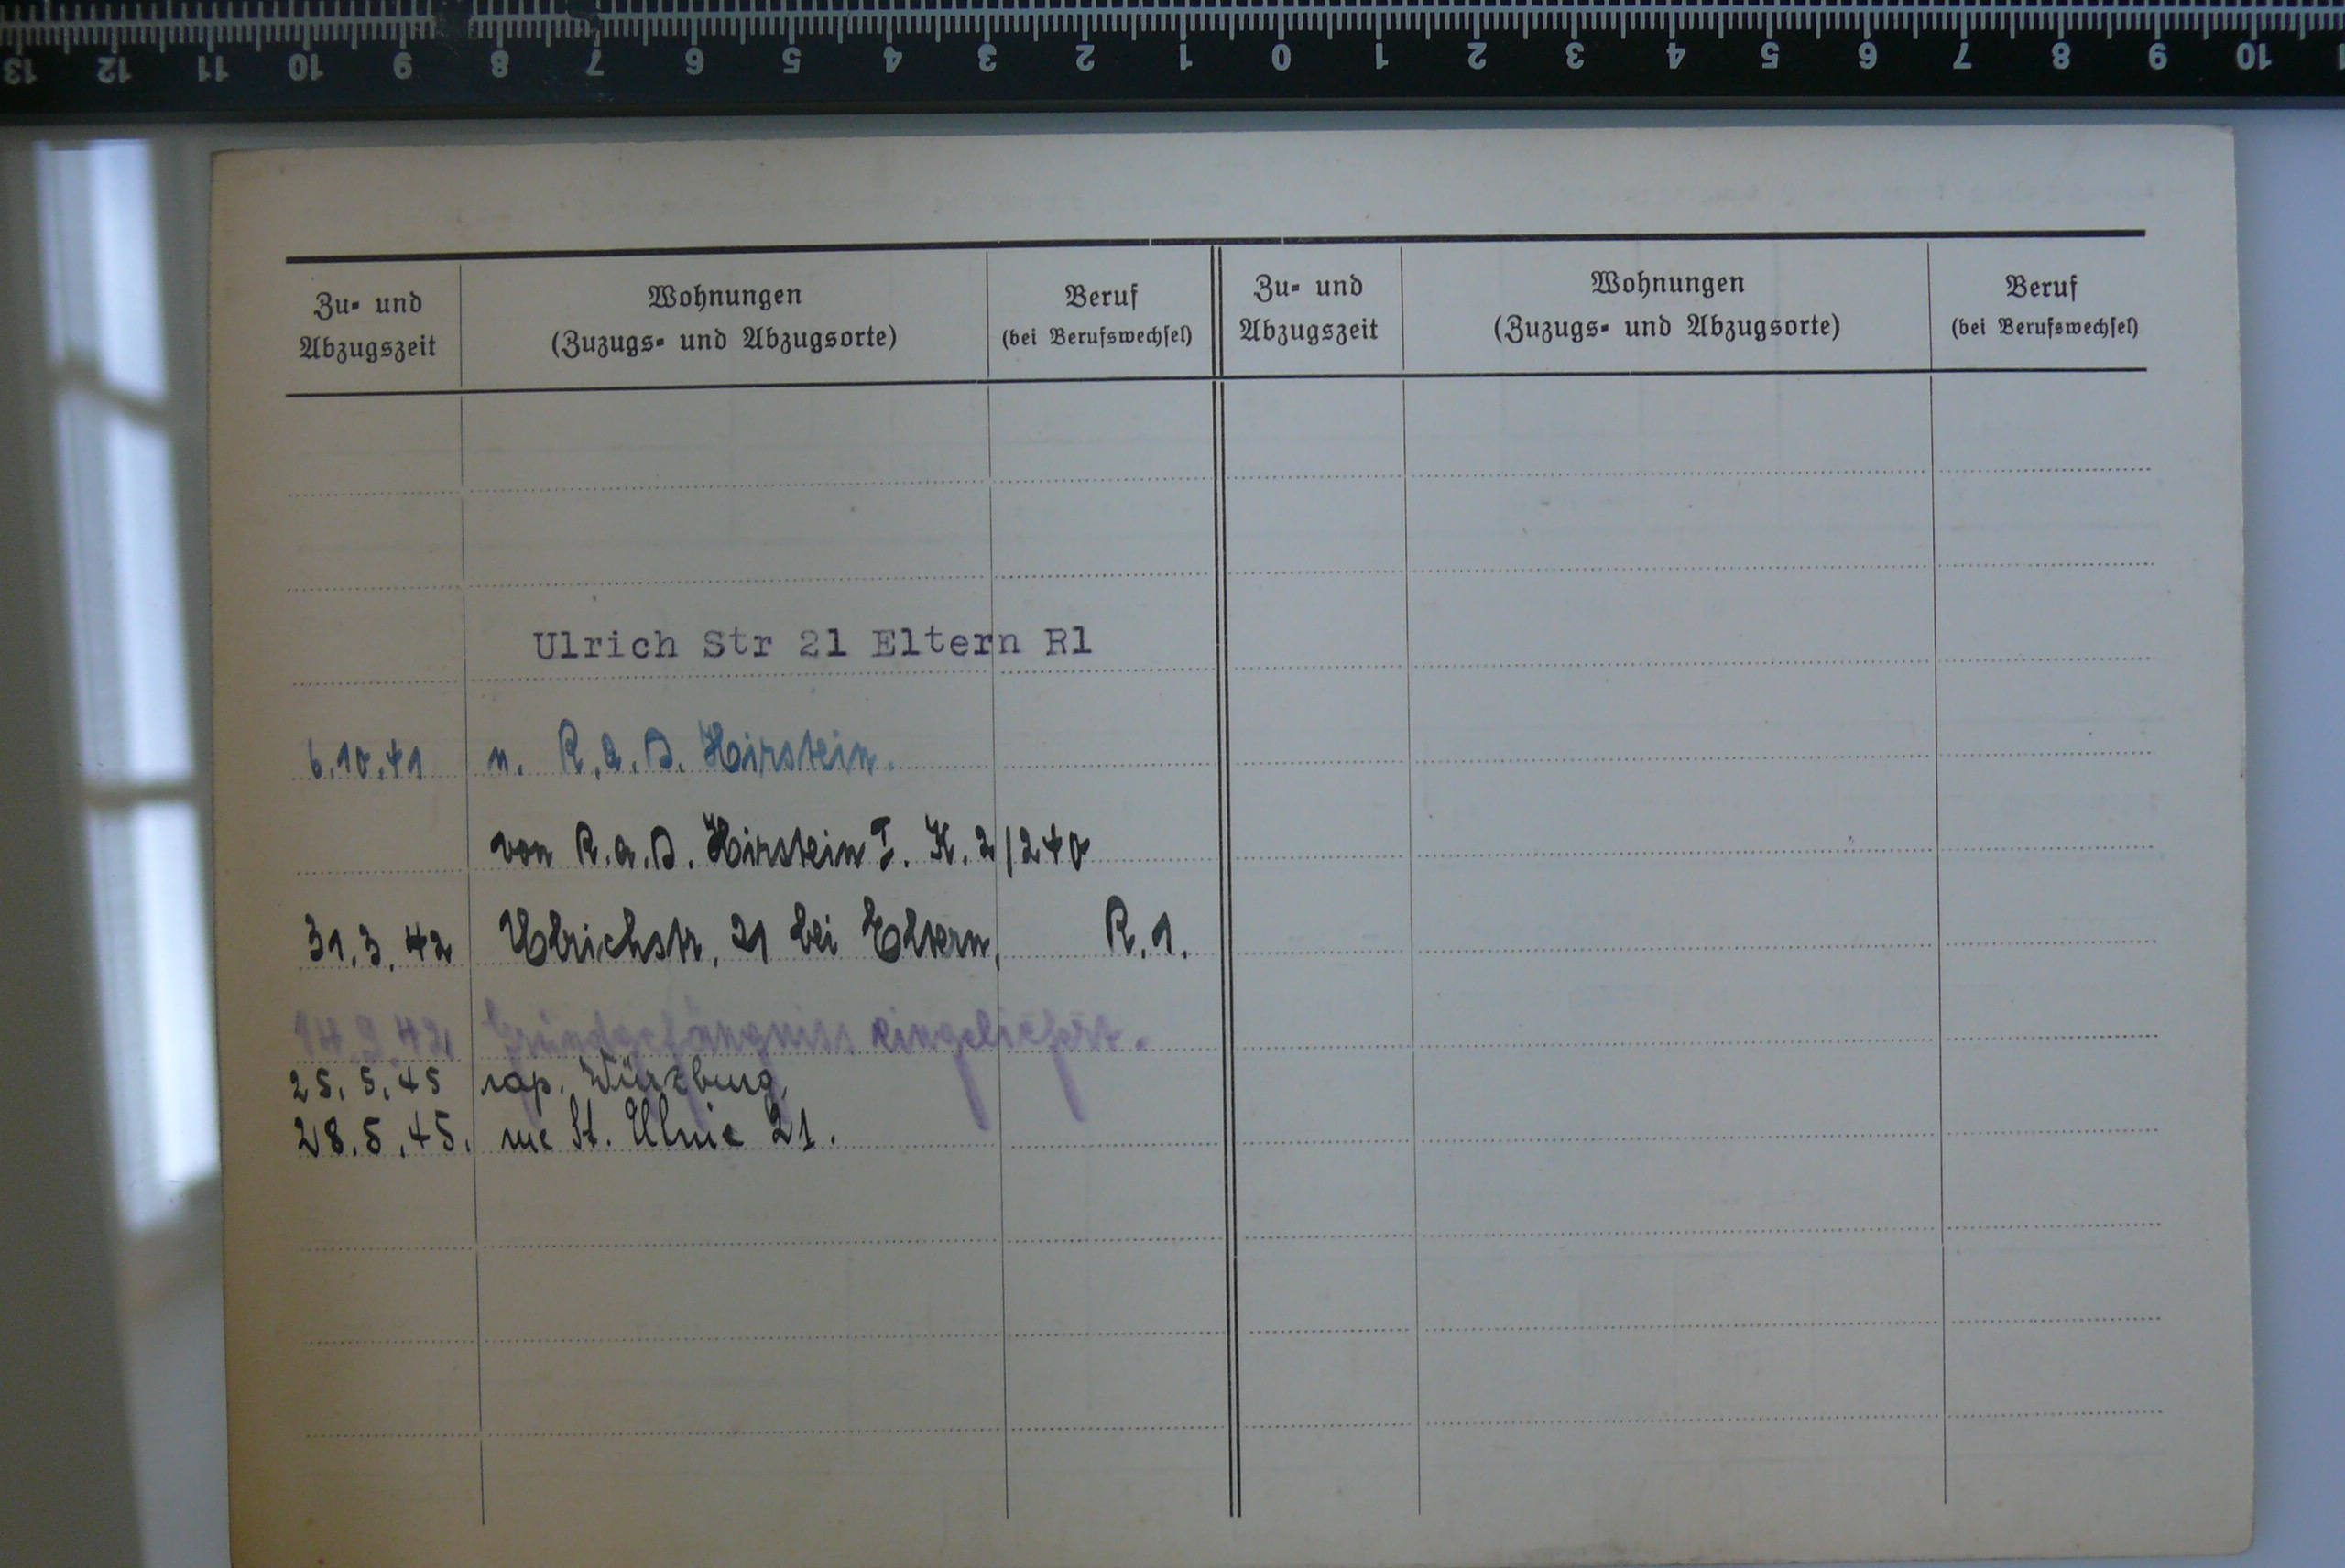 13 12 11 10 9 8 7 6 5 4 3 2 1 0 1 2 3 4 5 6 7 8 9 10
Zu- und Abzugszeit
Wohnungen
(Zuzugs- und Abzugsorte)
Beruf
(bei Berufswechsel)
Zu- und Abzugszeit
Wohnungen
(Zuzugs- und Abzugsorte)
Beruf
(bei Berufswechsel)
Ulrich Str 21 Eltern R1
6.10.41 n. R.a.D. Hirstein.
von R.a.D. Hirstein I. K. 2/240
31.3.42 Ulrichstr. 21 bei Eltern, R.1.
14.9.42 eingeliefert.
25.5.45 rap. Würzburg,
28.5.45. rue St. Ulric 21.